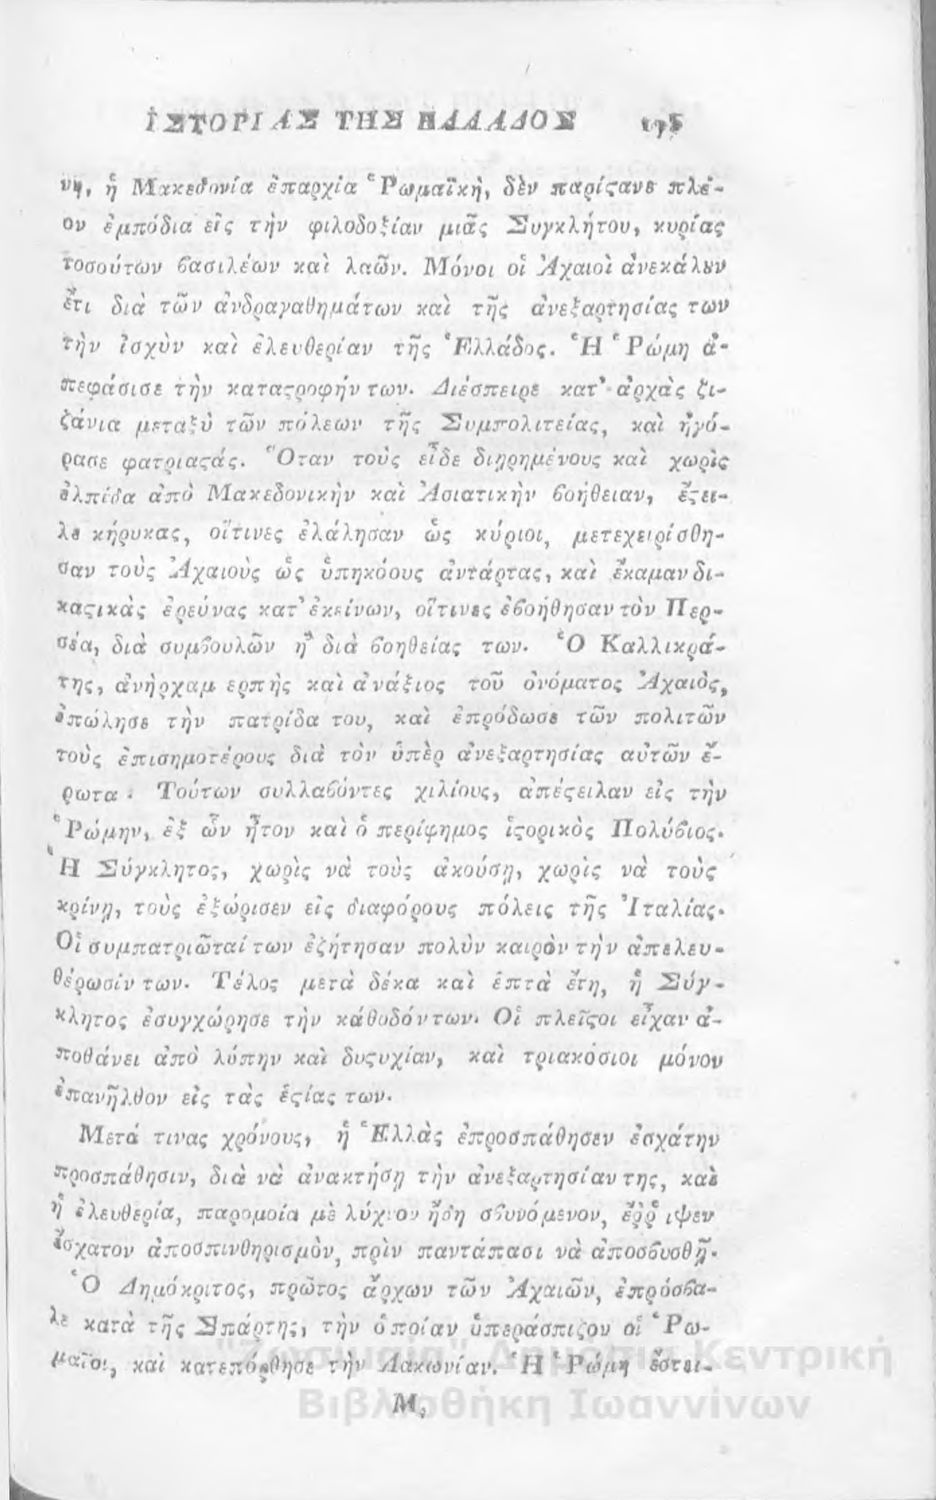 ἹΣΤΟΡΙΑΣ ΤΗΣ ΕΛΛΑΔΟΣ
νη, ἡ Μακεδονία ἐπαρχία Ῥωμαϊκὴ, δὲν παρίϛανε πλέ-
ον ἐμπόδια εἰς τὴν φιλοδοξίαν μιᾶς Συγκλήτου, κυρίας
τοσούτων βασιλέων καὶ λαῶν. Μόνοι οἱ Ἀχαιοὶ ἀνεκάλουν
ἔτι διὰ τῶν ἀνδραγαθημάτων καὶ τῆς ἀνεξαρτησίας των
τὴν ἰσχὺν καὶ ἐλευθερίαν τῆς Ἑλλάδος. Ἡ Ῥώμη ἀ-
πεφάσισε τὴν καταϛροφήν των. Διέσπειρε κατ' ἀρχὰς ζι-
ζάνια μεταξὺ τῶν πόλεων τῆς Συμπολιτείας, καὶ ἠγό-
ρασε φατριαϛάς. Ὅταν τοὺς εἶδε διῃρημένους καὶ χωρὶς
ἐλπίδα ἀπὸ Μακεδονικὴν καὶ Ἀσιατικὴν βοήθειαν, ἔϛει-
λε κήρυκας, οἵτινες ἐλάλησαν ὡς κύριοι, μετεχειρίσθη-
σαν τοὺς Ἀχαιοὺς ὡς ὑπηκόους ἀντάρτας, καὶ ἔκαμαν δι-
καϛικὰς ἐρεύνας κατ' ἐκείνων, οἵτινες ἐβοήθησαν τὸν Περ-
σέα, διὰ συμβουλῶν ἢ διὰ βοηθείας των. Ὁ Καλλικρά-
της, ἀνὴρ χαμερπὴς καὶ ἀνάξιος τοῦ ὀνόματος Ἀχαιὸς,
ἐπώλησε τὴν πατρίδα του, καὶ ἐπρόδωσε τῶν πολιτῶν
τοὺς ἐπισημοτέρους διὰ τὸν ὑπὲρ ἀνεξαρτησίας αὐτῶν ἔ-
ρωτα. Τούτων συλλαβόντες χιλίους, ἀπέϛειλαν εἰς τὴν
Ῥώμην, ἐξ ὧν ἦτον καὶ ὁ περίφημος ἱϛορικὸς Πολύβιος.
Ἡ Σύγκλητος, χωρὶς νὰ τοὺς ἀκούσῃ, χωρὶς νὰ τοὺς
κρίνῃ, τοὺς ἐξώρισεν εἰς διαφόρους πόλεις τῆς Ἰταλίας.
Οἱ συμπατριῶταί των ἐζήτησαν πολὺν καιρὸν τὴν ἀπελευ-
θέρωσίν των. Τέλος μετὰ δέκα καὶ ἑπτὰ ἔτη, ἡ Σύγ-
κλητος ἐσυγχώρησε τὴν κάθοδόν των. Οἱ πλεῖϛοι εἶχαν ἀ-
ποθάνει ἀπὸ λύπην καὶ δυϛυχίαν, καὶ τριακόσιοι μόνον
ἐπανῆλθον εἰς τὰς ἑϛίας των.
Μετά τινας χρόνους, ἡ Ἑλλὰς ἐπροσπάθησεν ἐσχάτην
προσπάθησιν, διὰ νὰ ἀνακτήσῃ τὴν ἀνεξαρτησίαν της, καὶ
ἡ ἐλευθερία, παρομοία μὲ λύχνον ἤδη σβυνόμενον, ἔῤῥιψεν
ἔσχατον ἀποσπινθηρισμὸν, πρὶν παντάπασι νὰ ἀποσβυσθῇ.
Ὁ Δημόκριτος, πρῶτος ἄρχων τῶν Ἀχαιῶν, ἐπρόσβα-
λε κατὰ τῆς Σπάρτης, τὴν ὁποίαν ὑπεράσπιζον οἱ Ῥω-
μαῖοι, καὶ κατεπόρθησε τὴν Λακωνίαν. Ἡ Ῥώμη ἔστει-
Μ,
"Ζωσιμαία" Δημόσια Κεντρική
Βιβλιοθήκη Ιωαννίνων